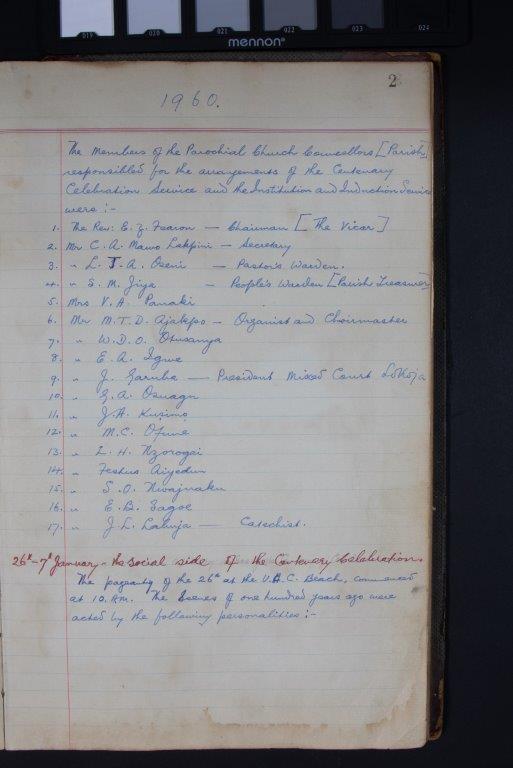 019 020 021 022 023 024
mennon®
2
1960.
The Members of the Parochial Church Councellors [Parish]
responsibled for the arrangements of the Centenary
Celebration Service and the Institution and Induction Service
were :-
1. The Rev: E. Z. Fearon — Chairman [The Vicar]
2. Mr C. A. Mamo Lakpini — Secretary
3. " L. J. A. Oseni — Pastor's Warden.
4. " S. M. Jiya — People's Warden [Parish Treasurer]
5. Mrs V. A. Panaki
6. Mr M. T. D. Ajakpo — Organist and Choirmaster
7. " W. D. O. Otusanya
8. " E. A. Igwe
9. " J. Garuba — President Mixed Court Lokoja
10. " G. A. Osuagu
11. " J. A. Kusimo
12. " M. C. Ofune
13. " L. H. Nzorogai
14. " Festus Aiyedun
15. " S. O. Nwajnaku
16. " E. B. Eagoe
17. " J. L. Labuja — Catechist.
26th - 7th January - the social side of the Centenary Celebrations.
The pageantry of the 26th at the U.A.C. Beach, commenced
at 10. AM. The Scenes of one hundred years ago were
acted by the following personalities :-